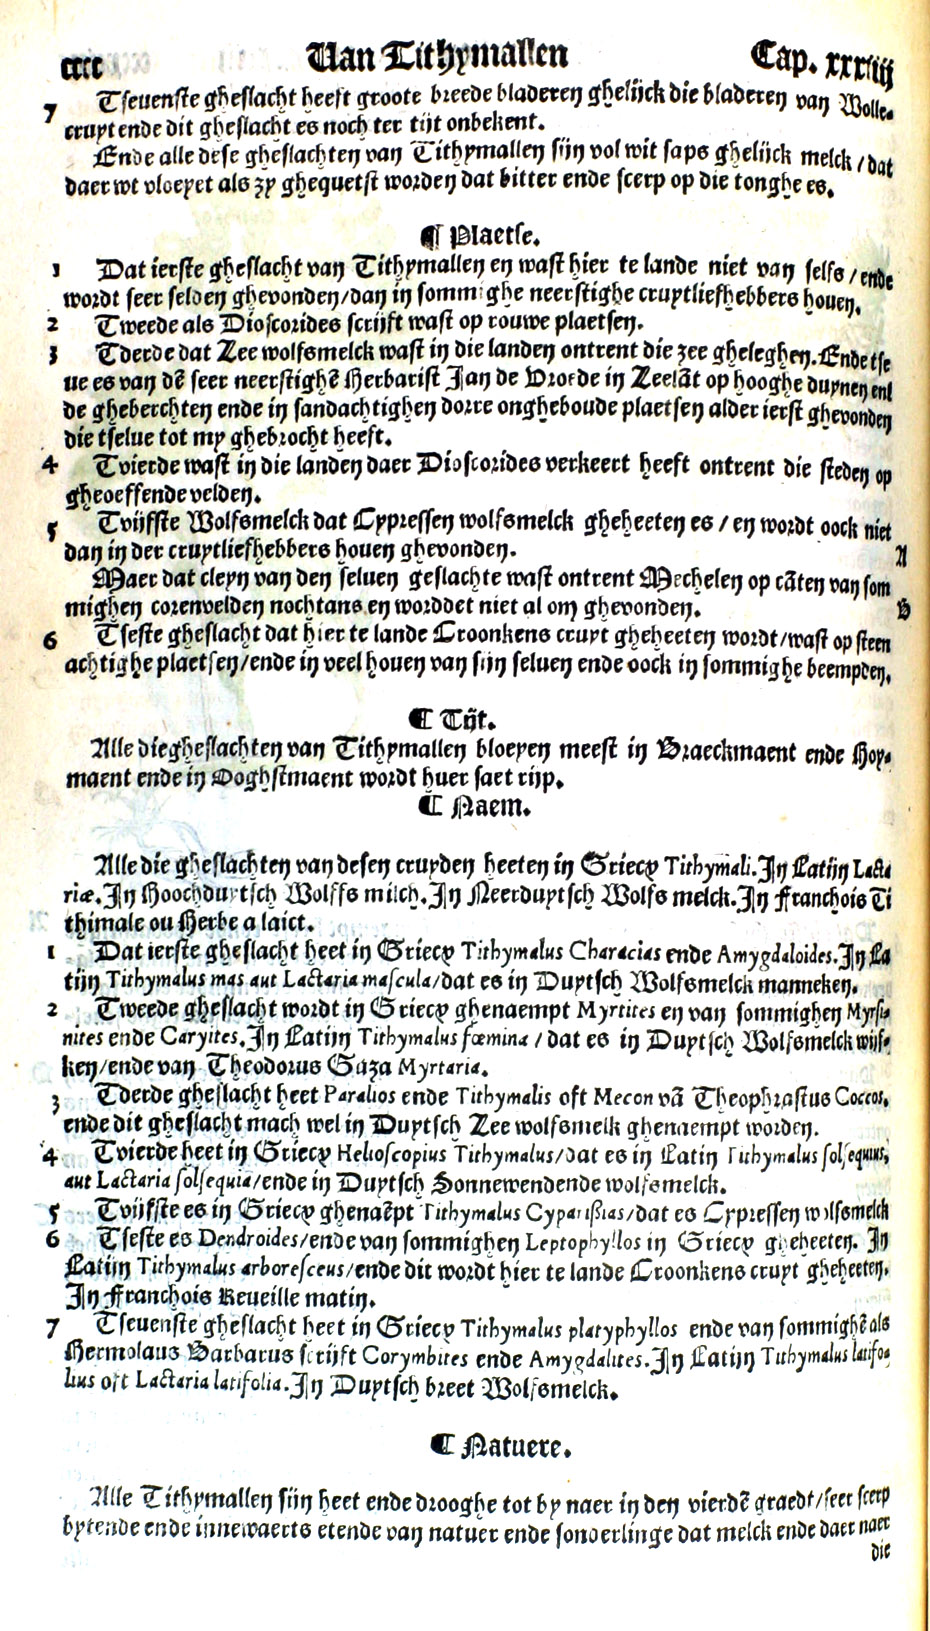 cccc Van Tithymallen Cap. xxxiij
7 Tseuenste gheslacht heeft groote breede bladeren ghelijck die bladeren van Wolle-
cruyt ende dit gheslacht es noch ter tijt onbekent.
Ende alle dese gheslachten van Tithymallen sijn vol wit saps ghelijck melck / dat
daer wt vloeyet als zy ghequetst worden dat bitter ende scerp op die tonghe es.
¶ Plaetse.
1 Dat ierste gheslacht van Tithymallen en wast hier te lande niet van selfs / ende
wordt seer selden ghevonden/dan in sommighe neerstighe cruytliefhebbers houen.
2 Tweede als Dioscorides scrijft wast op rouwe plaetsen.
3 Tderde dat Zee wolfsmelck wast in die landen ontrent die zee gheleghen. Ende tse
ue es van dẽ seer neerstighẽ Herbarist Jan de Vroede in Zeelãt op hooghe duynen enl
de gheberchten ende in sandachtighen dorre ongheboude plaetsen alder ierst ghevonden
die tselue tot my ghebrocht heeft.
4 Tvierde wast in die landen daer Dioscorides verkeert heeft ontrent die steden op
gheoeffende velden.
5 Tvijfste Wolfsmelck dat Cypressen wolfsmelck gheheeten es / en wordt oock niet
dan in der cruytliefhebbers houen ghevonden.
A
Maer dat cleyn van den seluen geslachte wast ontrent Mechelen op cãten van som
mighen corenvelden nochtans en worddet niet al om ghevonden.
B
6 Tseste gheslacht dat hier te lande Croonkens cruyt gheheeten wordt/wast op steen
achtighe plaetsen/ende in veel houen van sijn seluen ende oock in sommighe beempden.
¶ Tijt.
Alle diegheslachten van Tithymallen bloeyen meest in Braeckmaent ende Hoy-
maent ende in Ooghstmaent wordt huer saet rijp.
¶ Naem.
Alle die gheslachten van desen cruyden heeten in Griecx Tithymali. In Latijn Lacta
riæ. In Hoochduytsch Wolffs milch. In Neerduytsch Wolfs melck. In Franchois Ti
thimale ou Herbe a laict.
1 Dat ierste gheslacht heet in Griecx Tithymalus Characias ende Amygdaloides. In La
tijn Tithymalus mas aut Lactaria mascula/dat es in Duytsch Wolfsmelck manneken.
2 Tweede gheslacht wordt in Griecx ghenaempt Myrtites en van sommighen Myrsi-
nites ende Caryites. In Latijn Tithymalus fœmina / dat es in Duytsch Wolfsmelck wijf-
ken/ende van Theodorus Gaza Myrtaria.
3 Tderde gheslacht heet Paralios ende Tithymalis oft Mecon vã Theophrastus Coccos.
ende dit gheslacht mach wel in Duytsch Zee wolfsmelk ghenaempt worden.
4 Tvierde heet in Griecx Helioscopius Tithymalus/dat es in Latin Tithymalus solsequius,
aut Lactaria solsequia/ende in Duytsch Sonnewendende wolfsmelck.
5 Tvijfste es in Griecx ghenaẽpt Tithymalus Cyparißias/dat es Cypressen wolfsmelck
6 Tseste es Dendroides/ende van sommighen Leptophyllos in Griecx gheheeten. In
Latijn Tithymalus arboresceus/ende dit wordt hier te lande Croonkens cruyt gheheeten.
In Franchois Reueille matin.
7 Tseuenste gheslacht heet in Griecx Tithymalus platyphyllos ende van sommighẽ als
Hermolaus Barbarus scrijft Corymbites ende Amygdalites. In Latijn Tithymalus latifo-
lius oft Lactaria latifolia. In Duytsch breet Wolfsmelck.
¶ Natuere.
Alle Tithymallen sijn heet ende drooghe tot by naer in den vierdẽ graedt/seer scerp
bytende ende innewaerts etende van natuer ende sonderlinge dat melck ende daer naer
die